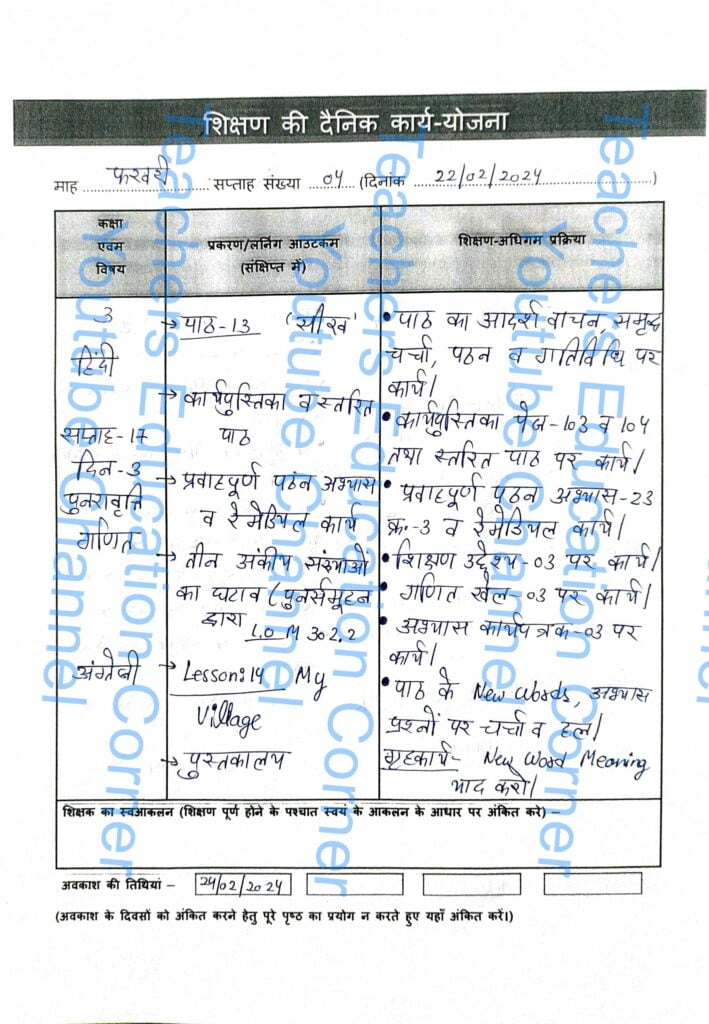 शिक्षण की दैनिक कार्य-योजना
माह फरवरी सप्ताह संख्या 04 (दिनांक 22/02/2024)
कक्षा
एवम
विषय
प्रकरण/लर्निंग आउटकम
(संक्षिप्त में)
शिक्षण-अधिगम प्रक्रिया
3
हिंदी
सप्ताह-17
दिन-3
पुनरावृत्ति
गणित
अंग्रेजी
→ पाठ-13 ('सीख'
→ कार्यपुस्तिका व स्तरित
पाठ
→ प्रवाहपूर्ण पठन अभ्यास
व रेमेडियल कार्य
→ तीन अंकीय संख्याओं
का घटाव (पुनर्समूहन
द्वारा
L.O M 302.2
→ Lesson:14 My
Village
→ पुस्तकालय
• पाठ का आदर्श वाचन, समूह
चर्चा, पठन व गतिविधि पर
कार्य।
• कार्यपुस्तिका पेज-103 व 104
तथा स्तरित पाठ पर कार्य।
• प्रवाहपूर्ण पठन अभ्यास-23
क्र.-3 व रेमेडियल कार्य।
• शिक्षण उद्देश्य-03 पर कार्य।
• गणित खेल-03 पर कार्य।
• अभ्यास कार्यपत्रक-03 पर
कार्य।
• पाठ के New Words, अभ्यास
प्रश्नों पर चर्चा व हल।
गृहकार्य- New Word Meaning
याद करो।
शिक्षक का स्वआकलन (शिक्षण पूर्ण होने के पश्चात स्वयं के आकलन के आधार पर अंकित करे) –
अवकाश की तिथियां – 24/02/2024
(अवकाश के दिवसों को अंकित करने हेतु पूरे पृष्ठ का प्रयोग न करते हुए यहाँ अंकित करें।)
Teachers Education Corner
Youtube Channel
Teachers Education Corner
Youtube Channel
Teachers Education Corner
Youtube Channel